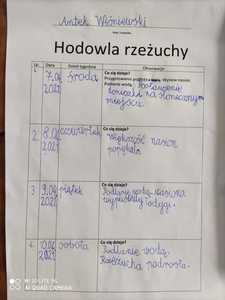 Antek Wiśniewski
Hodowla rzeżuchy
Lp. Data Dzień tygodnia Obserwacje
1. 7.04 2021 środa Co się dzieje?
Wysiew nasion.
Podlanie wodą. Postawienie
doniczki na słonecznym
miejscu.
2. 8.04 2021 czwartek Co się dzieje?
Większość nasion
popękała.
3. 9.04 2021 piątek Co się dzieje?
Podlanie wodą. Nasiona
wypuściły łodygi.
4. 10.04 2021 sobota Co się dzieje?
Podlanie wodą.
Rzeżucha podrosła.
AI QUAD CAMERA